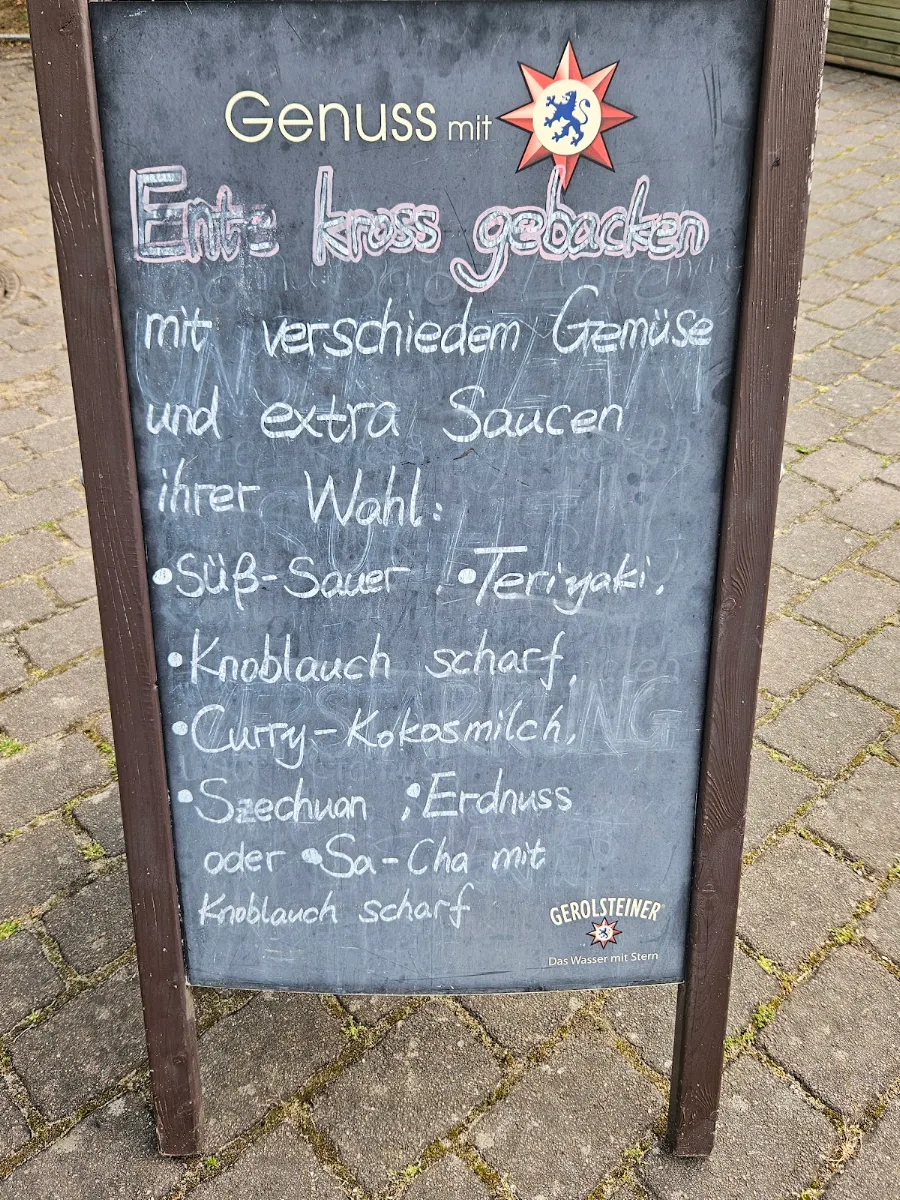 Genuss mit
Ente kross gebacken
mit verschiedem Gemüse
und extra Saucen
ihrer Wahl:
•Süß-Sauer, •Teriyaki,
•Knoblauch scharf,
•Curry-Kokosmilch,
•Szechuan, •Erdnuss
oder •Sa-Cha mit
Knoblauch scharf
GEROLSTEINER
Das Wasser mit Stern